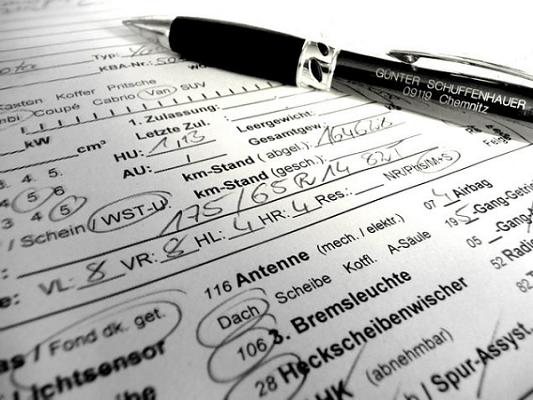 GÜNTER SCHUFFENHAUER
09119 Chemnitz
Typ:
KBA-Nr.: 50
Kaxton Koffer Pritsche
mbi Coupé Cabrio Van SUV
kW cm³
1. Zulassung:
Letzte Zul.:
HU: 1,13
AU:
Leergewicht:
Gesamtgew.:
km-Stand (abgel.):
km-Stand (gesch.):
3. 4. 5.
4 5 6
3 4 5
/ Schein / WST-U 175/65 R 14 82T NR/Ph/S/M+S
e: VL: 8 VR: 8 HL: 4 HR: 4 Res.:
07 4 Airbag
19 5-Gang-Getri
05 -Gang-
52 Radio
82
116 Antenne (mech. / elektr.)
Dach Scheibe Kotfl. A-Säule
106 3. Bremsleuchte
28 Heckscheibenwischer
HK (abnehmbar)
/ Spur-Assyst.
as / Fond dk. get.
Lichtsensor